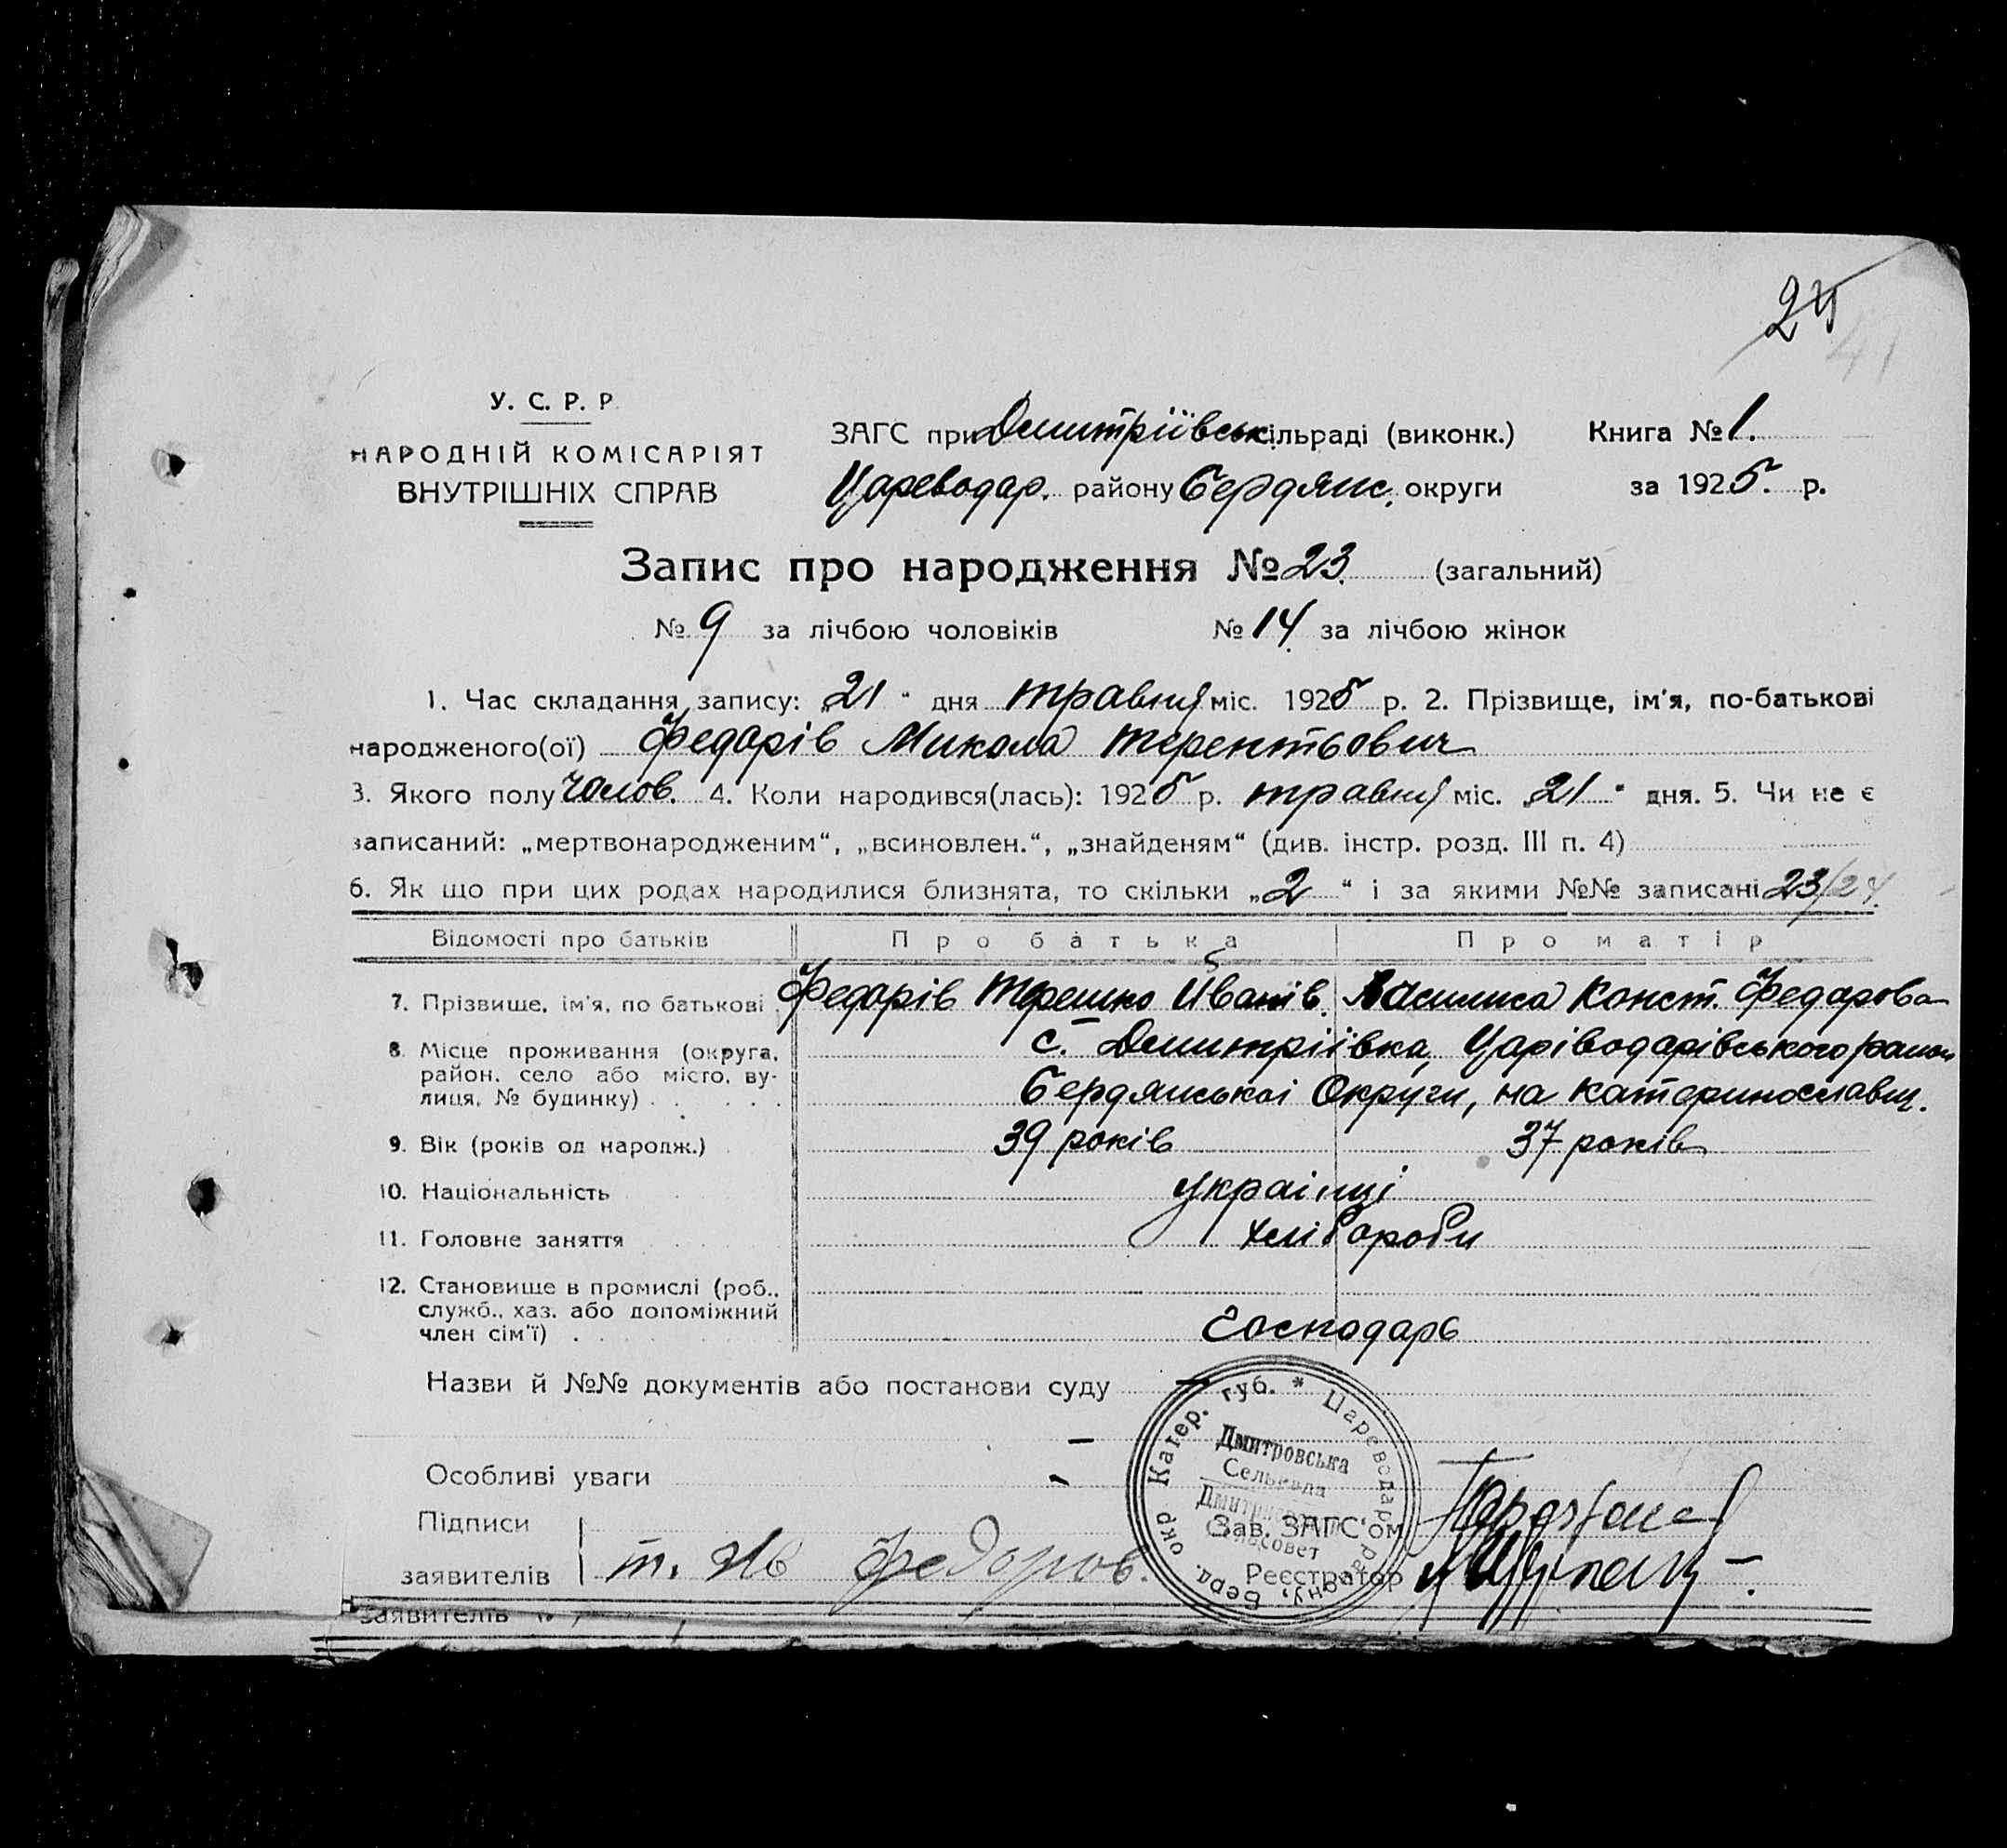 24
41
У. С. Р. Р.
НАРОДНІЙ КОМІСАРІЯТ
ВНУТРІШНІХ СПРАВ
ЗАГС при Дмитріївськ. сільраді (виконк.) Книга № 1.
Цареводар. району Бердянс. округи за 1925. р.
Запис про народження № 23. (загальний)
№ 9 за лічбою чоловіків № 14 за лічбою жінок
1. Час складання запису: „21“ дня травня міс. 1925 р. 2. Прізвище, ім'я, по-батькові
народженого(ої) Федарів Микола Терентьович
3. Якого полу чолов. 4. Коли народився(лась): 1925 р. травня міс. „21“ дня. 5. Чи не є
записаний: „мертвонародженим“, „всиновлен.“, „знайденям“ (див. інстр. розд. III п. 4)
6. Як що при цих родах народилися близнята, то скільки „2“ і за якими №№ записані 23/24.
Відомості про батьків Про батька Про матір
7. Прізвище, ім'я, по батькові Федарів Терешко Іванів. Василиса Конст. Федарова
8. Місце проживання (округа, с. Дмитріївка, Царіводарівського район
район, село або місто, ву-
лиця, № будинку) Бердянськоі Округи, на Катеринославщ.
9. Вік (років од народж.) 39 років 37 років
10. Національність Украінці
11. Головне заняття хлібороби
12. Становище в промислі (роб.,
служб., хаз. або допоміжний
член сім'ї) Господарь
Назви й №№ документів або постанови суду —
—
Особливі уваги -
Катер. губ. * Цареводар. району, Берд. окр
Дмитровська
Сельрада
Сельсовет
Підписи
Зав. ЗАГС'ом
заявителів Т. Ив Федоров. Реєстратор
заявителів